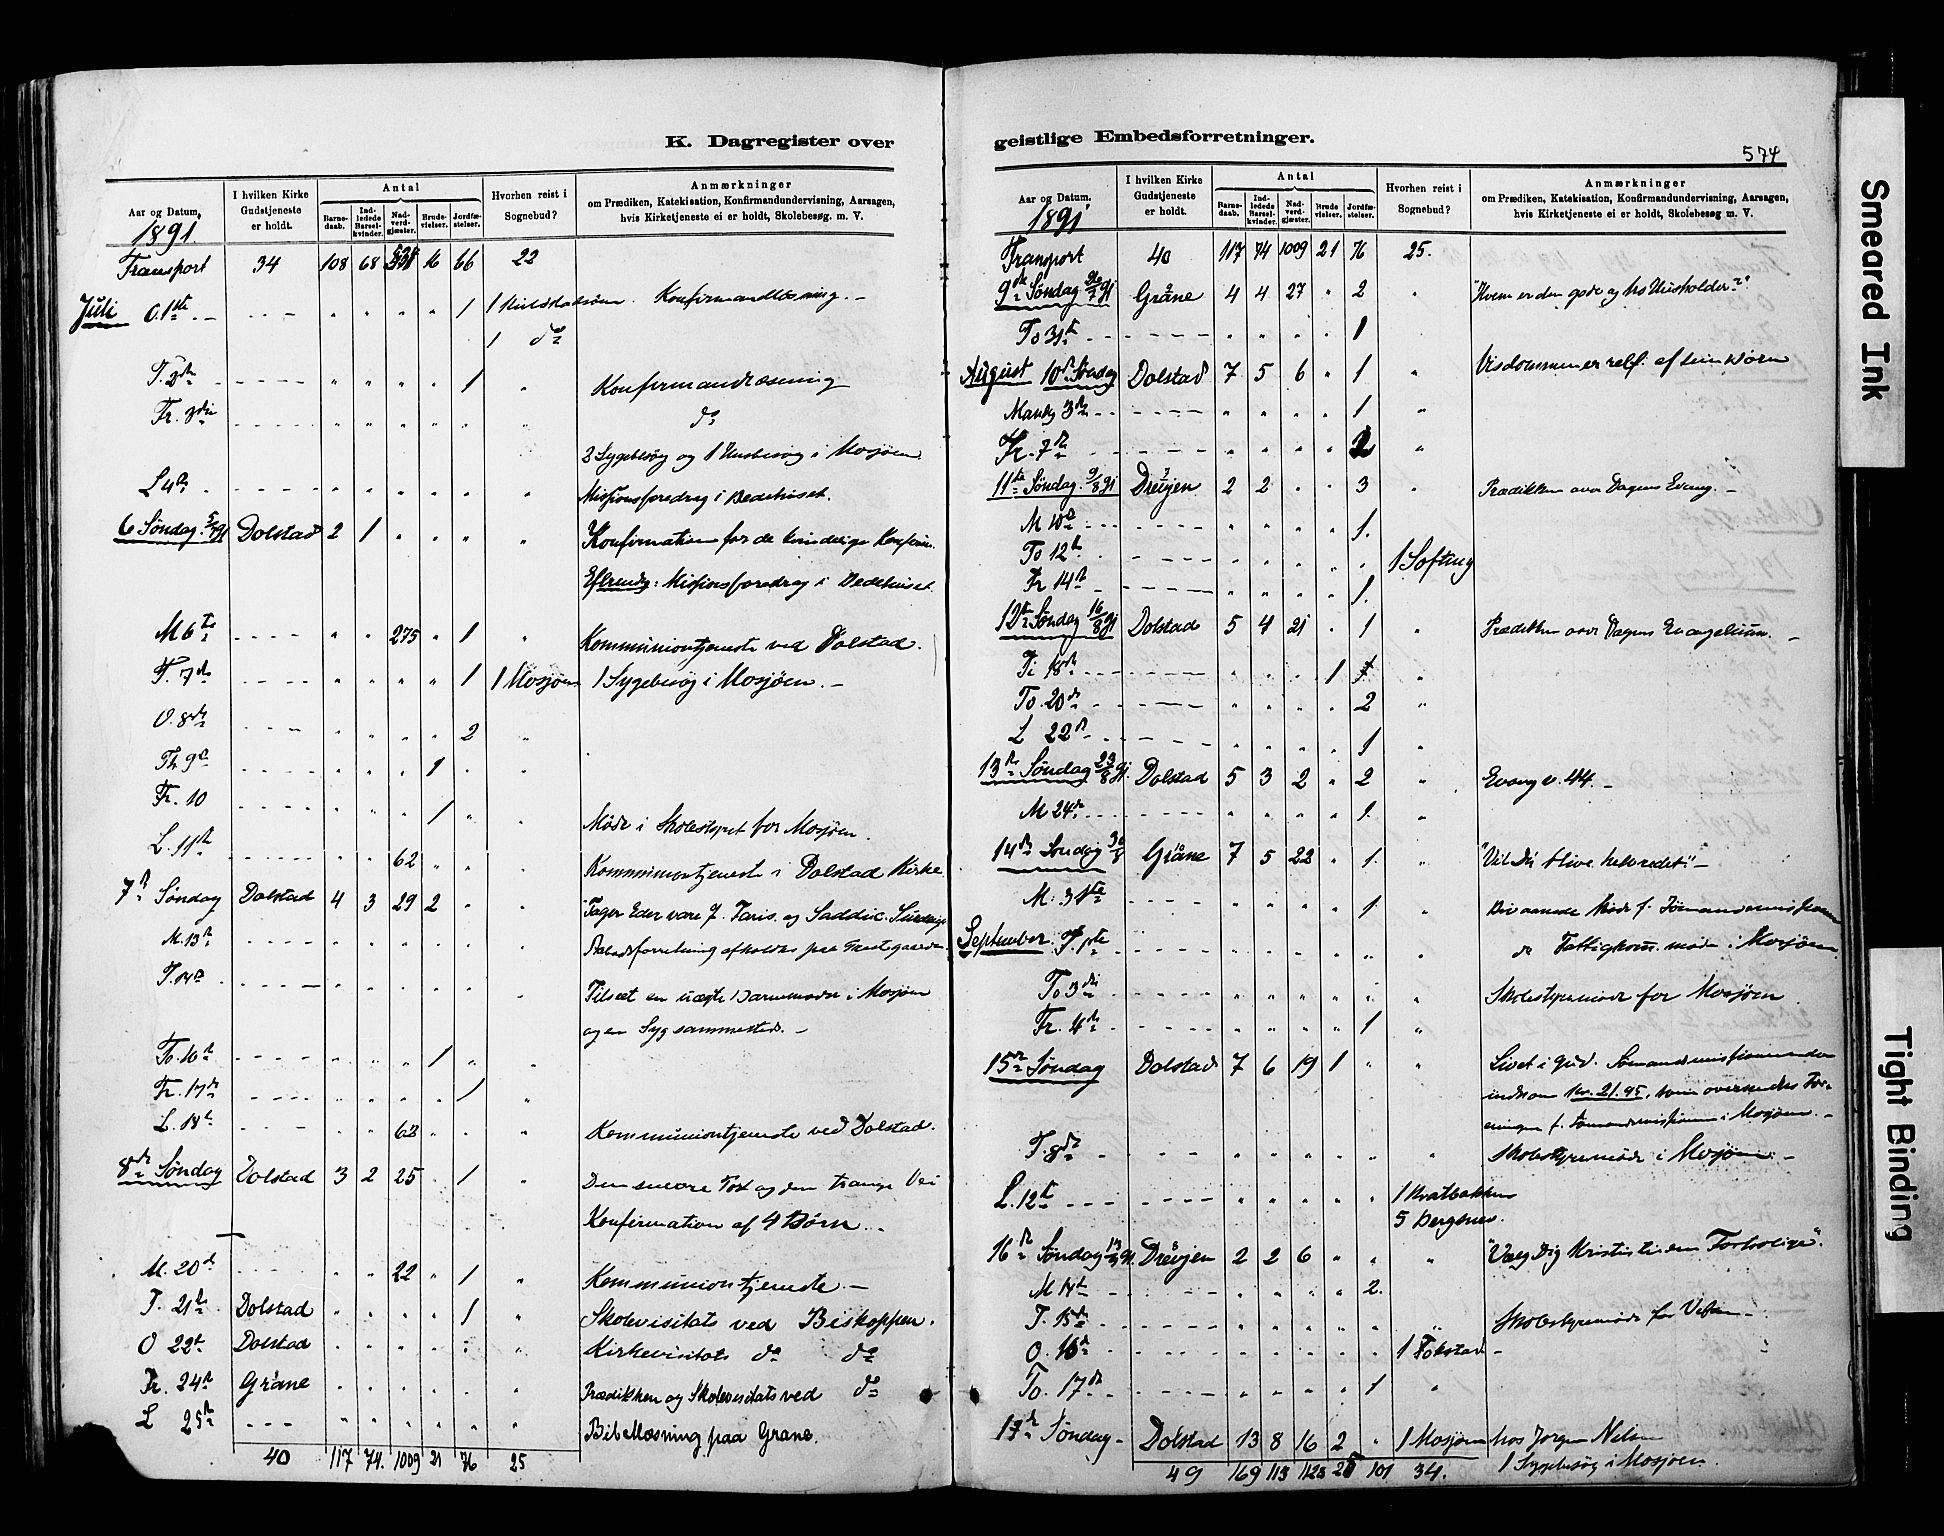 K. Dagregister over
Aar og Datum,
1891.
I hvilken Kirke Gudstjeneste er holdt.
Antal
Barne-daab.
Ind-ledede Barsel-kvinder.
Nad-verd-gjæster.
Brude-vielser.
Jordfæ-stelser.
Hvorhen reist i Sognebud?
Anmærkninger
om Prædiken, Katekisation, Konfirmandundervisning, Aarsagen,
hvis Kirketjeneste ei er holdt, Skolebesøg m. V.
Transport 34 108 68 16 66 22
Juli O. 1ste 1 1 Konfirmandlæsning.
1 do
T. 2den 1 Konfirmandlæsning
Fr. 3die do
2 Sygebesøg og 1 Husbesøg i Mosjøen
L 4de Missionsforedrag i Bedehuset.
6 Søndag 5/7 91 Dolstad 2 1 Konfirmation for de kvindelige Konfirm.
Eftermdg: Missionsforedrag i Bedehuset
M 6te 275 1 Kommuniontjeneste ved Dolstad.
T. 7de 1 1 Mosjøen 1 Sygebesøg i Mosjøen.
O. 8de 2
Th 9de 1
Fr. 10 1 Møde i Skolestyret for Mosjøen.
L. 11te 62 Kommuniontjeneste i Dolstad Kirke
7de Søndag Dolstad 4 3 29 2 Tager Eder vare f. Faris. og Saddúc. Surdeig
M. 13de forretning afholdes paa
T. 14de Tilseet en uægte Barnemoder i Mosjøen
og en Syg sammesteds.
To. 16de 1
Fr. 17de 1
L. 18de 62 Kommuniontjeneste ved Dolstad.
8de Søndag Dolstad 3 2 25 1 Den snevre Port og den trange Vei
Konfirmation af 4 Børn.
M. 20de 22 1 Kommuniontjeneste
T. 21de Dolstad 1 Skolevisitats ved Biskoppen.
O 22de Dolstad Kirkevisitats do do
Fr. 24de Gråne Prædikken og Skolevisitats ved do
L 25de Bibellæsning paa Grane.
40 117 74. 1009 21 76 25
geistlige Embedsforretninger.
574
Aar og Datum.
1891
I hvilken Kirke Gudstjeneste er holdt.
Antal
Barne-daab.
Ind-ledede Barsel-kvinder.
Nad-verd-gjæster.
Brude-vielser.
Jordfæ-stelser.
Hvorhen reist i Sognebud?
Anmærkninger
om Prædiken, Katekisation, Konfirmandundervisning, Aarsagen,
hvis Kirketjeneste ei er holdt, Skolebesøg m. V.
Transport 40 117 74 1009 21 76 25.
9de Søndag 26/7 91 Gråne 4 4 27 2 "Hvem er den gode og tro Husholder?"
To 31te 1
August 10de Søndag Dolstad 7 5 6 1 Visdommen er retf. af sine Børn
Mandg 3de 1
Fr. 7de 2
11te Søndag. 9/8 91 Drevjen 2 2 3 Prædikken over Dagens Evang.
M 10de 1.
To 12te 1 Softing
Fr 14de 1.
12te Søndag 16/8 91 Dolstad 5 4 21 1 Prædikken over Dagens Evangelium.
Ti 18de 1
To. 20de 2
L 22de 1
13de Søndag 23/8 91. Dolstad 5 3 2 2 Evang v. 44.
M 24de 1.
14de Søndag 30/8 Gråne 7 5 22 1. "Vil Du blive helbredet"
M. 31te 1
September T. 1ste do Fattigkom. møde i Mosjøen
To 3die Skolestyremøde for Mosjøen
Fr. 4de 1
15de Søndag Dolstad 7 6 19 1 Livet i Gud.
indkom kr. 21.95, som oversendes For-
eningen f. Sømandsmissionen i Mosjøen.
T. 8de Skolestyremøde i Mosjøen.
L. 12te 1 Kvalbakken
5 Bergsnev.
16de Søndag 13/9 91. Drevjen 2 2 6 "Vælg Dig Kristus til en Fortrolige".
M 14de 2.
T. 15de Skolestyremøde for Vefsen
O. 16de 1 Fokstad
To. 17de 1
17de Søndag Dolstad 13 8 16 2 1 Mosjøen hos Jørgen Nilsen
1 Sygebesøg i Mosjøen.
49 169 113 1123 25 101 34.
Smeared Ink
Tight Binding